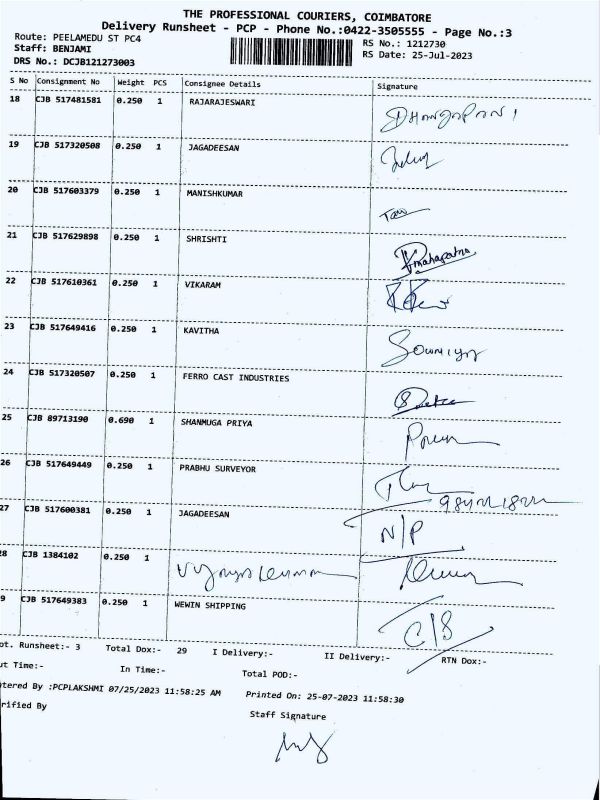 THE PROFESSIONAL COURIERS, COIMBATORE
Delivery Runsheet - PCP - Phone No.:0422-3505555 - Page No.:3
Route: PEELAMEDU ST PC4
RS No.: 1212730
Staff: BENJAMI
RS Date: 25-Jul-2023
DRS No.: DCJB121273003
S No Consignment No Weight PCS Consignee Details Signature
18 CJB 517481581 0.250 1 RAJARAJESWARI
19 CJB 517320508 0.250 1 JAGADEESAN
20 CJB 517603379 0.250 1 MANISHKUMAR
21 CJB 517629898 0.250 1 SHRISHTI Mahapatra
22 CJB 517610361 0.250 1 VIKARAM
23 CJB 517649416 0.250 1 KAVITHA Sowmiya
24 CJB 517320507 0.250 1 FERRO CAST INDUSTRIES
25 CJB 89713190 0.690 1 SHANMUGA PRIYA
26 CJB 517649449 0.250 1 PRABHU SURVEYOR
27 CJB 517600381 0.250 1 JAGADEESAN N/P
28 CJB 1384102 0.250 1
9 CJB 517649383 0.250 1 WEWIN SHIPPING C/S
ot. Runsheet:- 3 Total Dox:- 29 I Delivery:- II Delivery:- RTN Dox:-
ut Time:- In Time:- Total POD:-
tered By :PCPLAKSHMI 07/25/2023 11:58:25 AM Printed On: 25-07-2023 11:58:30
rified By Staff Signature